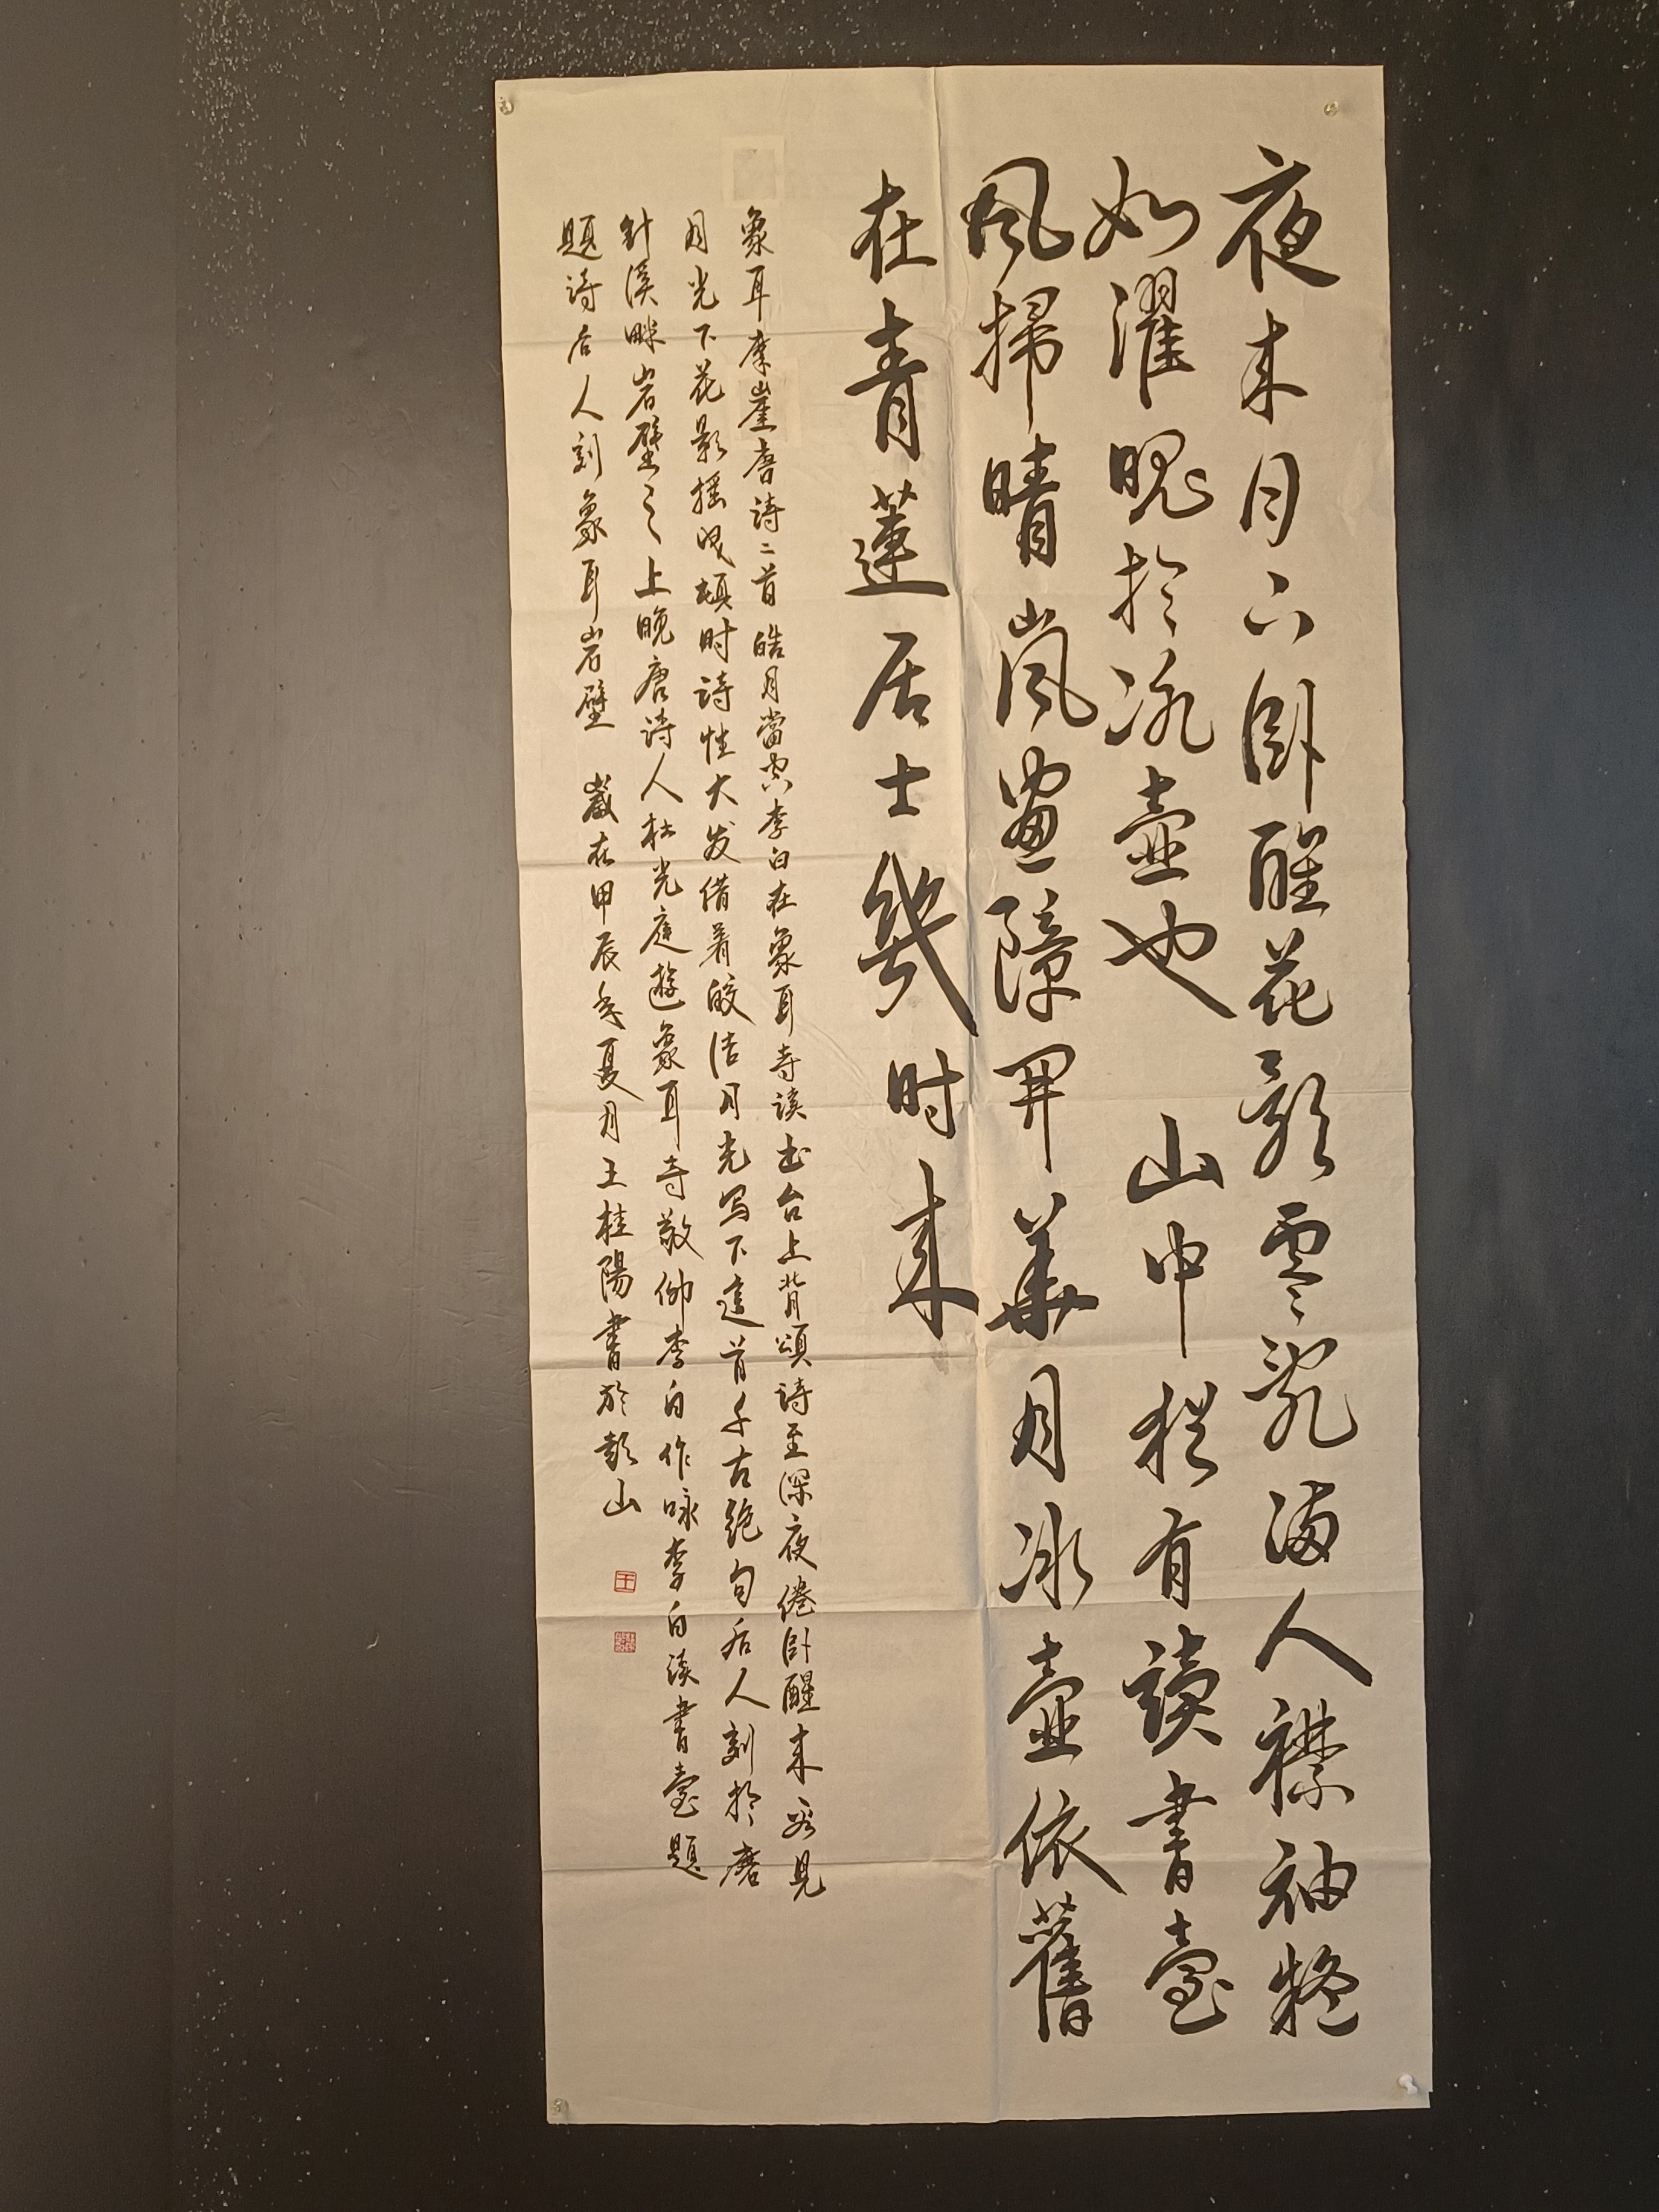 夜来月下卧醒花影零亂满人襟袖疑
如濯魄於冰壺也 山中猶有讀書臺
風掃晴嵐畫障開華月冰壺依舊
在青蓮居士幾时来
象耳摩崖唐詩二首 皓月當空李白在象耳寺读书台上背頌詩至深夜倦卧醒来看見
月光下花影摇曳頓时詩性大发借着皎洁月光写下這首千古绝句后人刻於磨
針溪畔岩壁之上晚唐詩人杜光庭遊象耳寺敬仰李白作咏李白读書臺題
題詩后人刻象耳岩壁 歲在甲辰年夏月王桂陽書於彭山
王